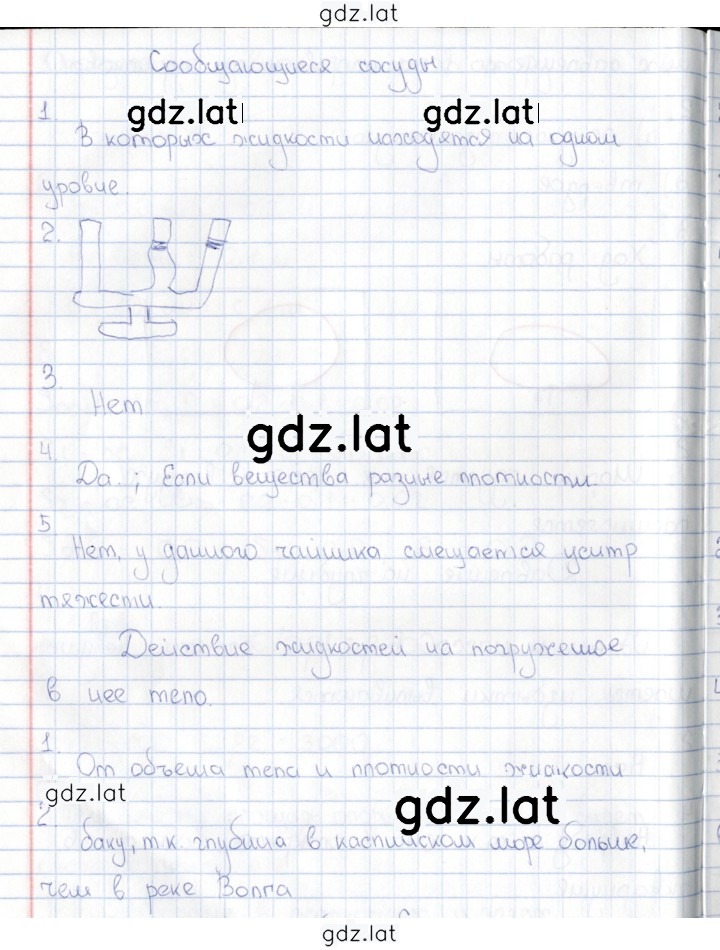 gdz.lat
Сообщающиеся сосуды
1.
gdz.lat gdz.lat
В которых жидкости находятся на одном
уровне.
2.
3.
Нет
gdz.lat
4.
Да.; Если вещества разные плотности.
5
Нет, у данного чайника смещается центр
тяжести.
Действие жидкостей на погруженное
в нее тело.
1.
От объема тела и плотности жидкости
gdz.lat
2
gdz.lat
баку, т.к. глубина в каспийском море больше,
чем в реке Волга
gdz.lat